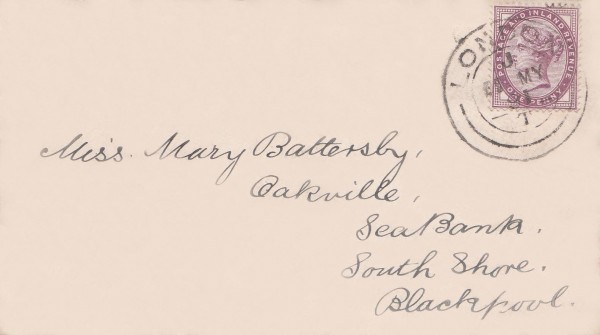 POSTAGE AND INLAND REVENUE
ONE PENNY
LONDON
MY
Miss. Mary Battersby,
Oakville,
Sea Bank.
South Shore.
Blackpool.